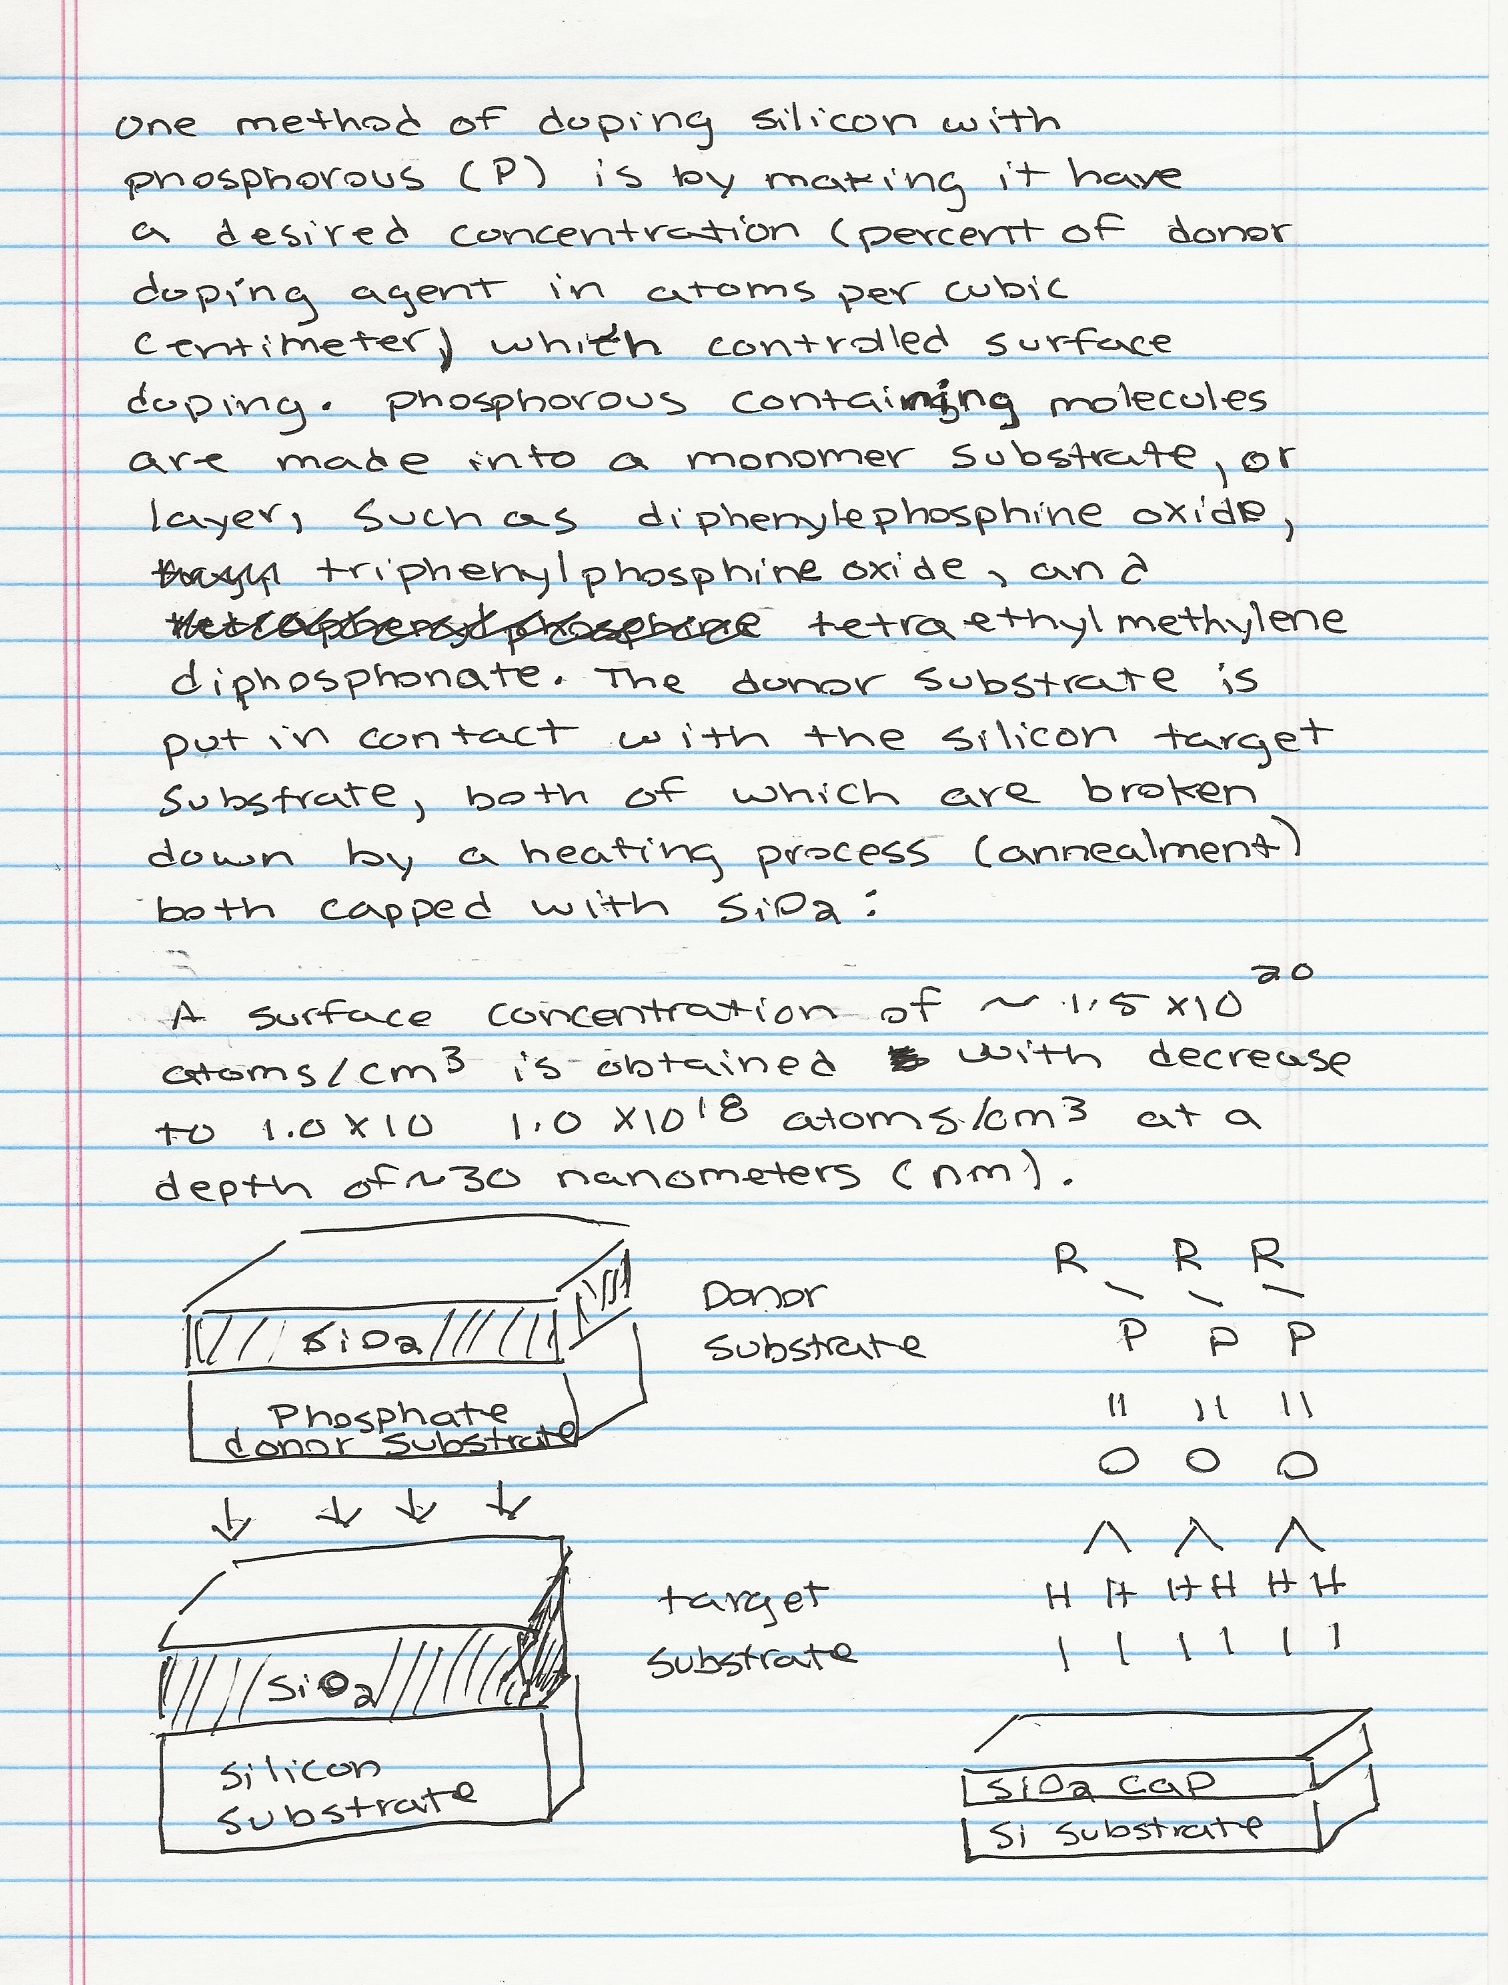 one method of doping silicon with
phosphorous (P) is by making it have
a desired concentration (percent of donor
doping agent in atoms per cubic
centimeter) which controlled surface
doping. phosphorous containing molecules
are made into a monomer substrate, or
layer, such as diphenylephosphine oxide,
triphenylphosphine oxide, and
tetraethylmethylene
diphosphonate. The donor substrate is
put in contact with the silicon target
substrate, both of which are broken
down by a heating process (annealment)
both capped with SiO2:
A surface concentration of ~ 1.5 x10 20
atoms/cm3 is obtained with decrease
to 1.0 x 10 1.0 x1018 atoms/cm3 at a
depth of ~30 nanometers (nm).
R R R
Donor
SiO2
substrate
P P P
Phosphate
donor substrate
O O O
target
H H H H H H
substrate
SiO2
Silicon
substrate
SiO2 cap
Si substrate